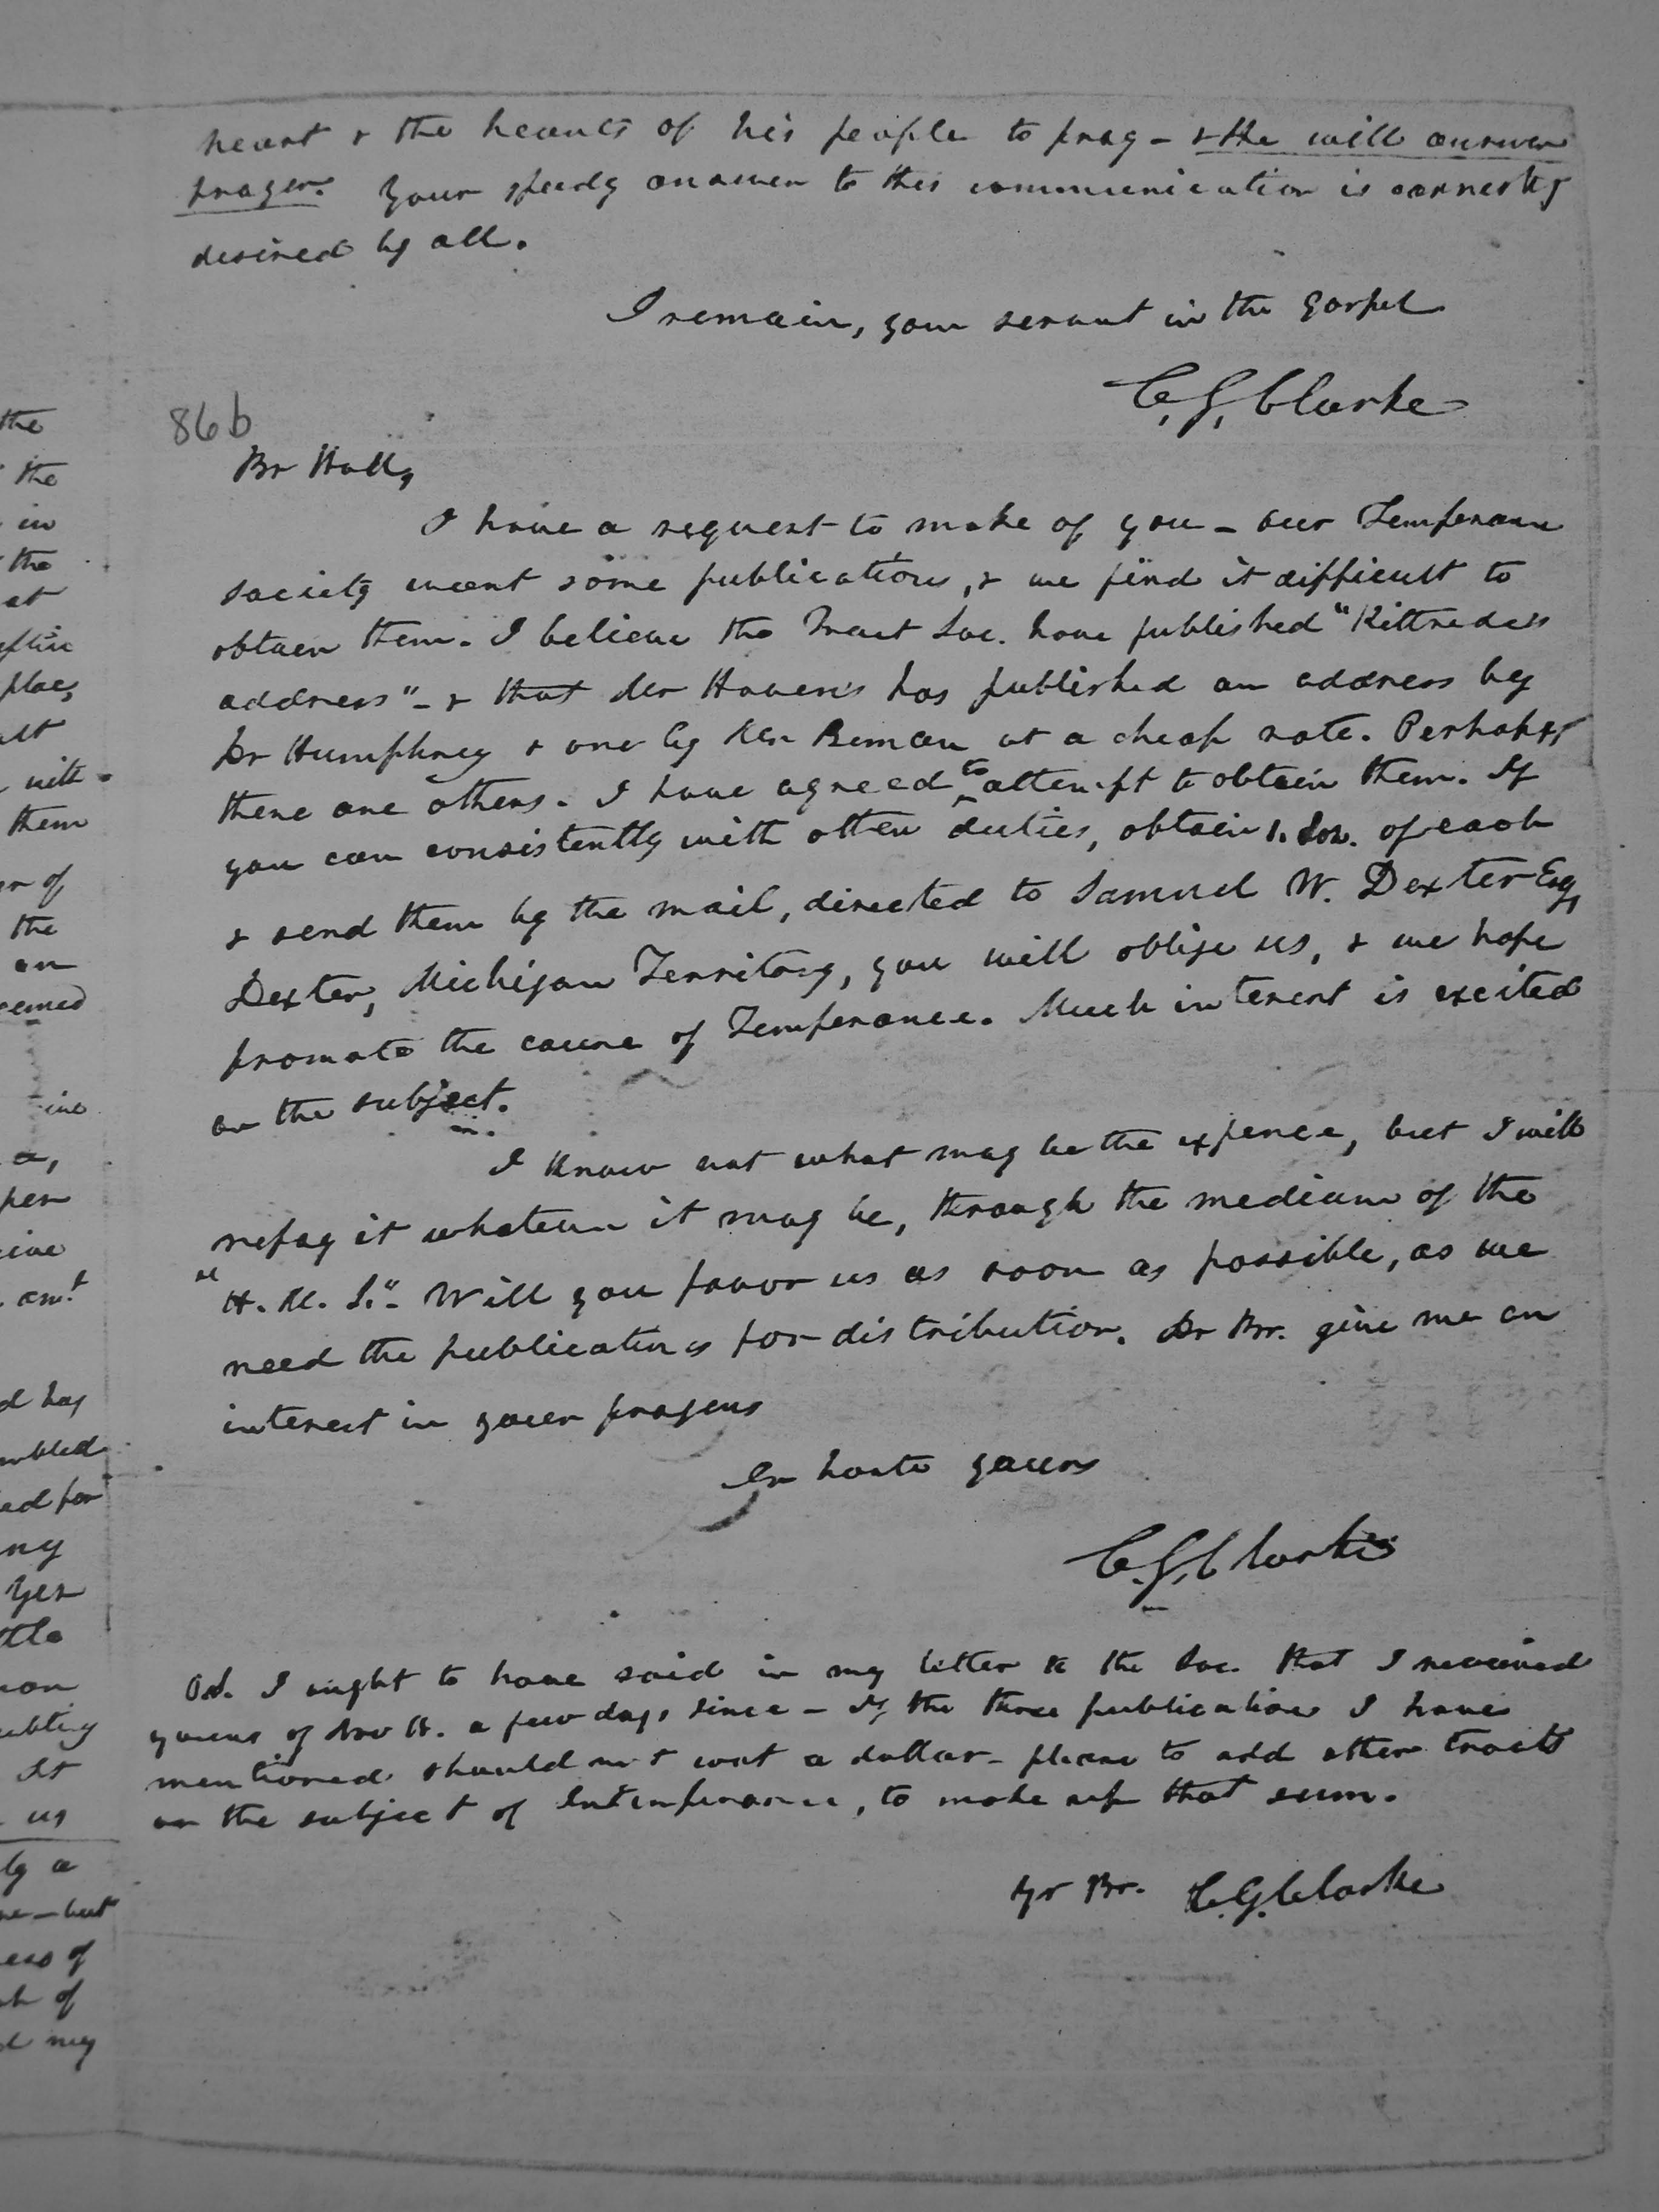 heart & the hearts of his people to pray - & He will answer
prayer. Your speedy answer to this communication is earnestly
desired by all.
I remain, your servant in the Gospel
C. G. Clarke
86b
Br Hall,
I have a request to make of you - our Temperance
society want some publications, & we find it difficult to
obtain them. I believe the Tract Soc. have published "Kittredge's
address" - & that Mr Haven's has published an address by
Dr Humphrey & one by Mr Beman at a cheap rate. Perhaps
there are others. I have agreed to attempt to obtain them. If
you can consistently with other duties, obtain 1. Doz. of each
& send them by the mail, directed to Samuel W. Dexter Esq,
Dexter, Michigan Territory, you will oblige us, & we hope
promote the cause of Temperance. Much interest is excited
on the subject.
I know not what may be the expence, but I will
refay it whatever it may be, through the medium of the
"H. M. S." - Will you favor us as soon as possible, as we
need the publications for distribution. Dr Br. give me an
interest in your prayers
In haste yours
C. G. Clarke
I ought to have said in my letter to the Soc. that I received
yours of Nov a few days since - If the three publications I have
mentioned should not cost a dollar - please to add other tracts
on the subject of Intemperance, to make up that sum.
Yr Br. C. G. Clarke
the
the
in
the
at
place,
with
them
of
the
an
ine
a,
per
am't
d has
ed for
ny
yes
on
It
us
ly a
- but
of
of
my